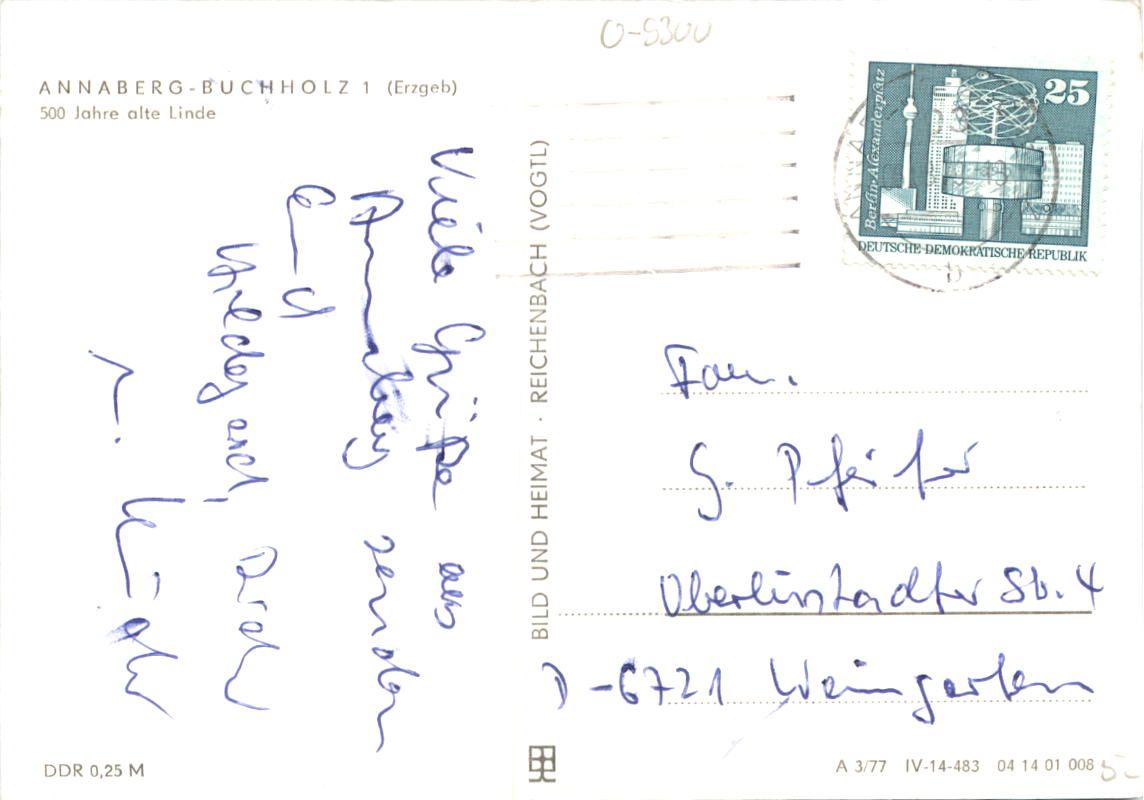 O-9300
ANNABERG-BUCHHOLZ 1 (Erzgeb)
500 Jahre alte Linde
Viele Grüße aus
Annaberg senden
Euch
Hildegard, Dieter
u. Kinder
BILD UND HEIMAT · REICHENBACH (VOGTL)
25
Berlin-Alexanderplatz
DEUTSCHE DEMOKRATISCHE REPUBLIK
b
Fam.
G. Pfeifer
Oberlustadter Str. 4
D-6721 Weingarten
DDR 0,25 M
A 3/77 IV-14-483 04 14 01 008